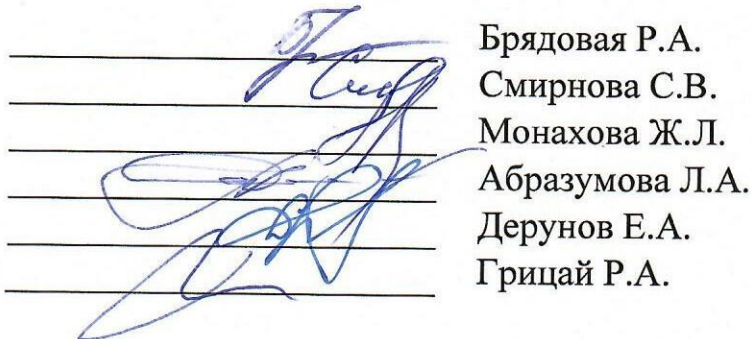 Брядовая Р.А.
Смирнова С.В.
Монахова Ж.Л.
Абразумова Л.А.
Дерунов Е.А.
Грицай Р.А.